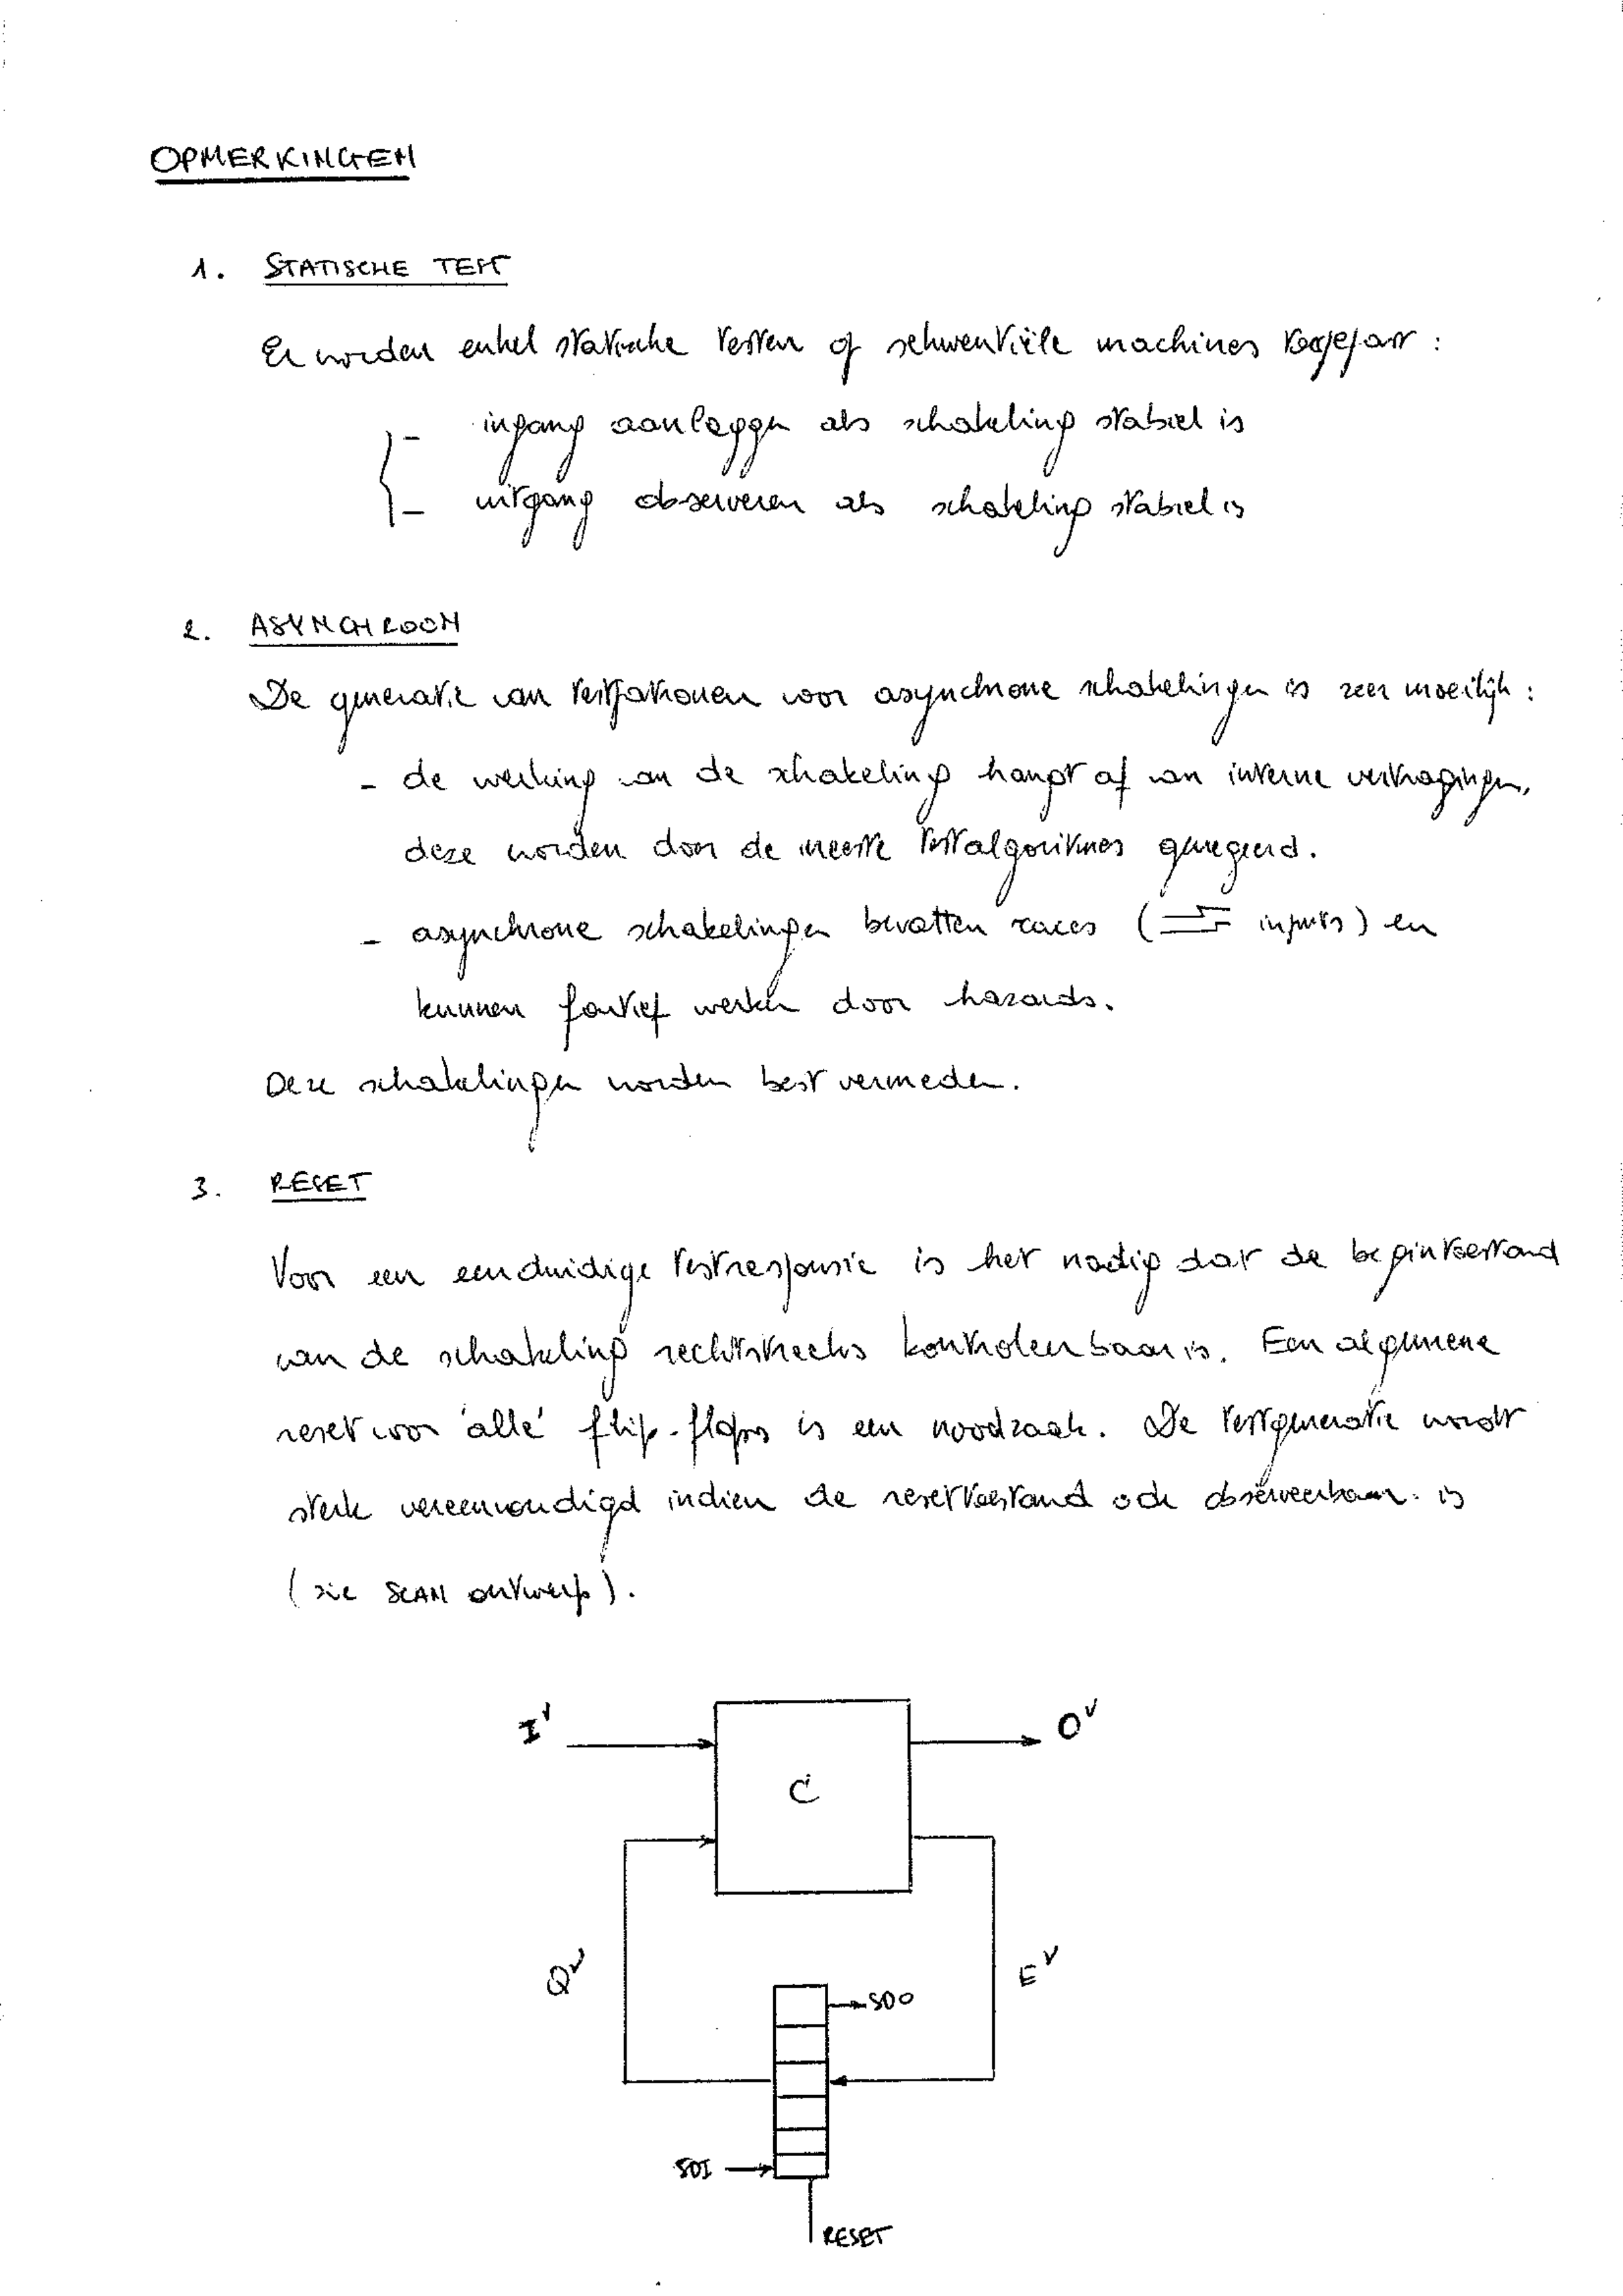 OPMERKINGEN
1. STATISCHE TEST
Er worden enkel statische testen op sekwentiële machines toegepast :
- ingang aanleggen als schakeling stabiel is
- uitgang observeren als schakeling stabiel is
2. ASYNCHROON
De generatie van testpatronen voor asynchrone schakelingen is zeer moeilijk :
- de werking van de schakeling hangt af van interne vertragingen,
deze worden door de meeste testalgoritmes genegeerd.
- asynchrone schakelingen bevatten races ( inputs) en
kunnen foutief werken door hazards.
Deze schakelingen worden best vermeden.
3. RESET
Voor een eenduidige testresponsie is het nodig dat de begintoestand
van de schakeling rechtstreeks kontroleerbaar is. Een algemene
reset voor 'alle' flip-flops is een noodzaak. De testgeneratie wordt
sterk vereenvoudigd indien de resettoestand ook observeerbaar is
(zie SCAN ontwerp).
I^v O^v
C
Q^v E^v
SDO
SDI
RESET